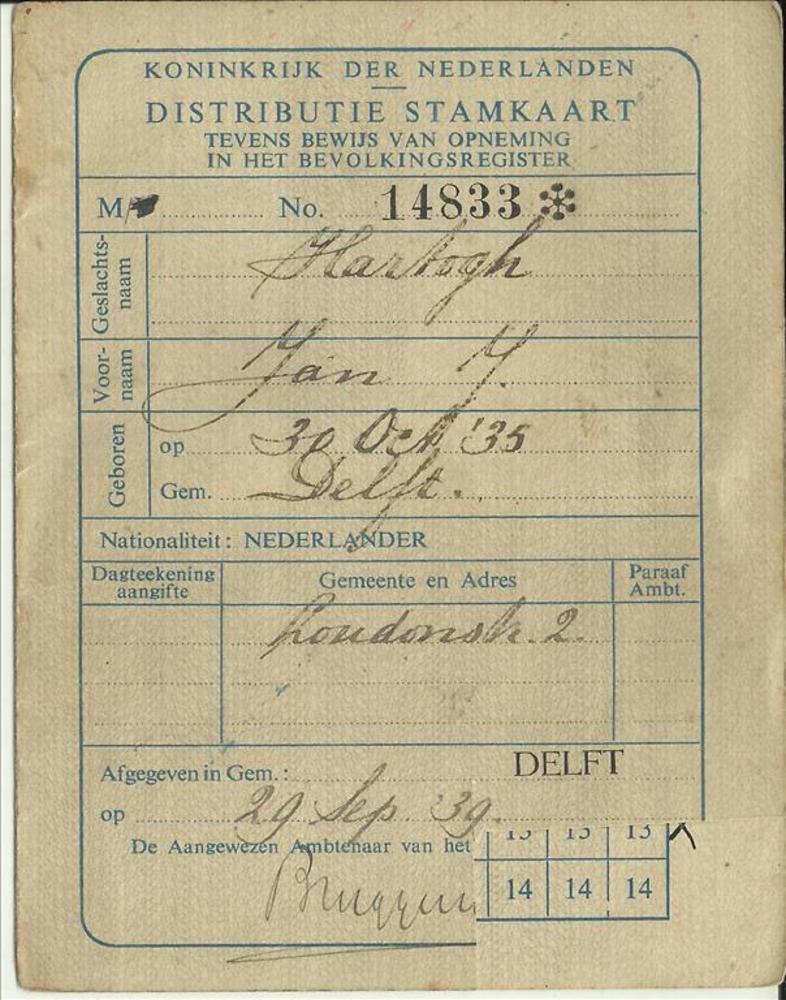 KONINKRIJK DER NEDERLANDEN
DISTRIBUTIE STAMKAART
TEVENS BEWIJS VAN OPNEMING
IN HET BEVOLKINGSREGISTER
M/ No. 14833 *
Geslachts-
naam
Hartogh
Voor-
naam
Jan J.
Geboren
op 30 Oct '35
Gem. Delft.
Nationaliteit: NEDERLANDER
Dagteekening
aangifte
Gemeente en Adres
Paraaf
Ambt.
Loudonstr. 2.
Afgegeven in Gem.: DELFT
op 29 Sep. '39.
De Aangewezen Ambtenaar van het
13 13 13
14 14 14